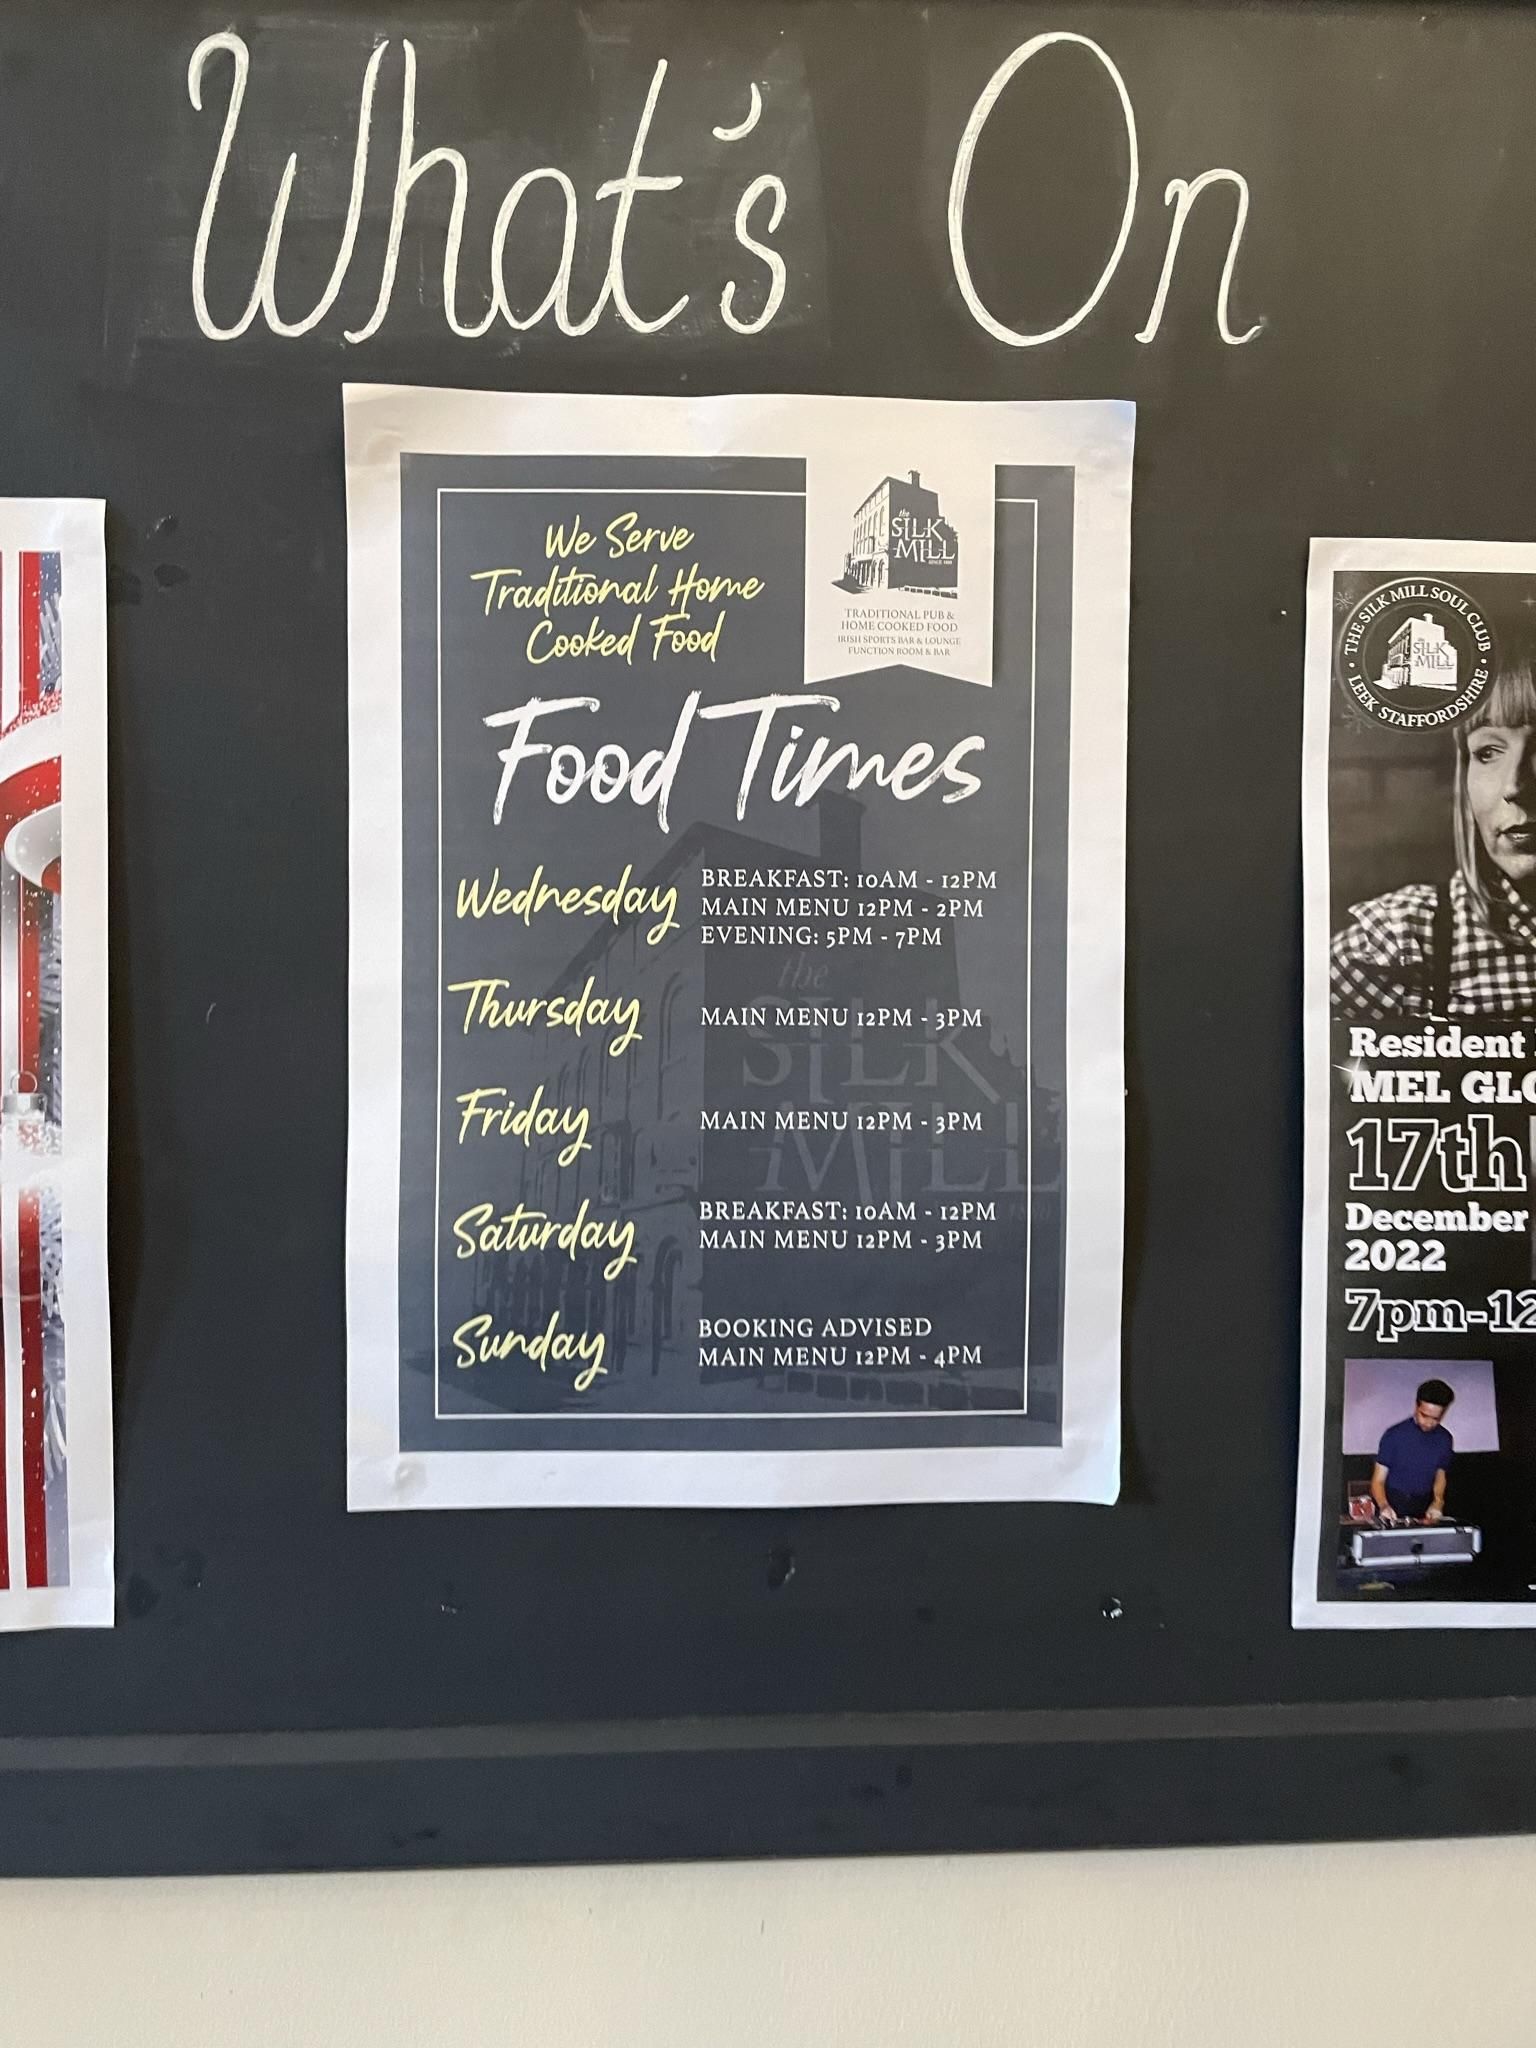 What's On
We Serve
Traditional Home
Cooked Food
the
SILK
MILL
TRADITIONAL PUB &
HOME COOKED FOOD
IRISH SPORTS BAR & LOUNGE
FUNCTION ROOM & BAR
Food Times
Wednesday
BREAKFAST: 10AM - 12PM
MAIN MENU 12PM - 2PM
EVENING: 5PM - 7PM
Thursday
MAIN MENU 12PM - 3PM
Friday
MAIN MENU 12PM - 3PM
Saturday
BREAKFAST: 10AM - 12PM
MAIN MENU 12PM - 3PM
Sunday
BOOKING ADVISED
MAIN MENU 12PM - 4PM
the
SILK
MILL
THE SILK MILL SOUL CLUB
LEEK STAFFORDSHIRE
SILK
MILL
Resident
MEL
17th
December
2022
7pm-12